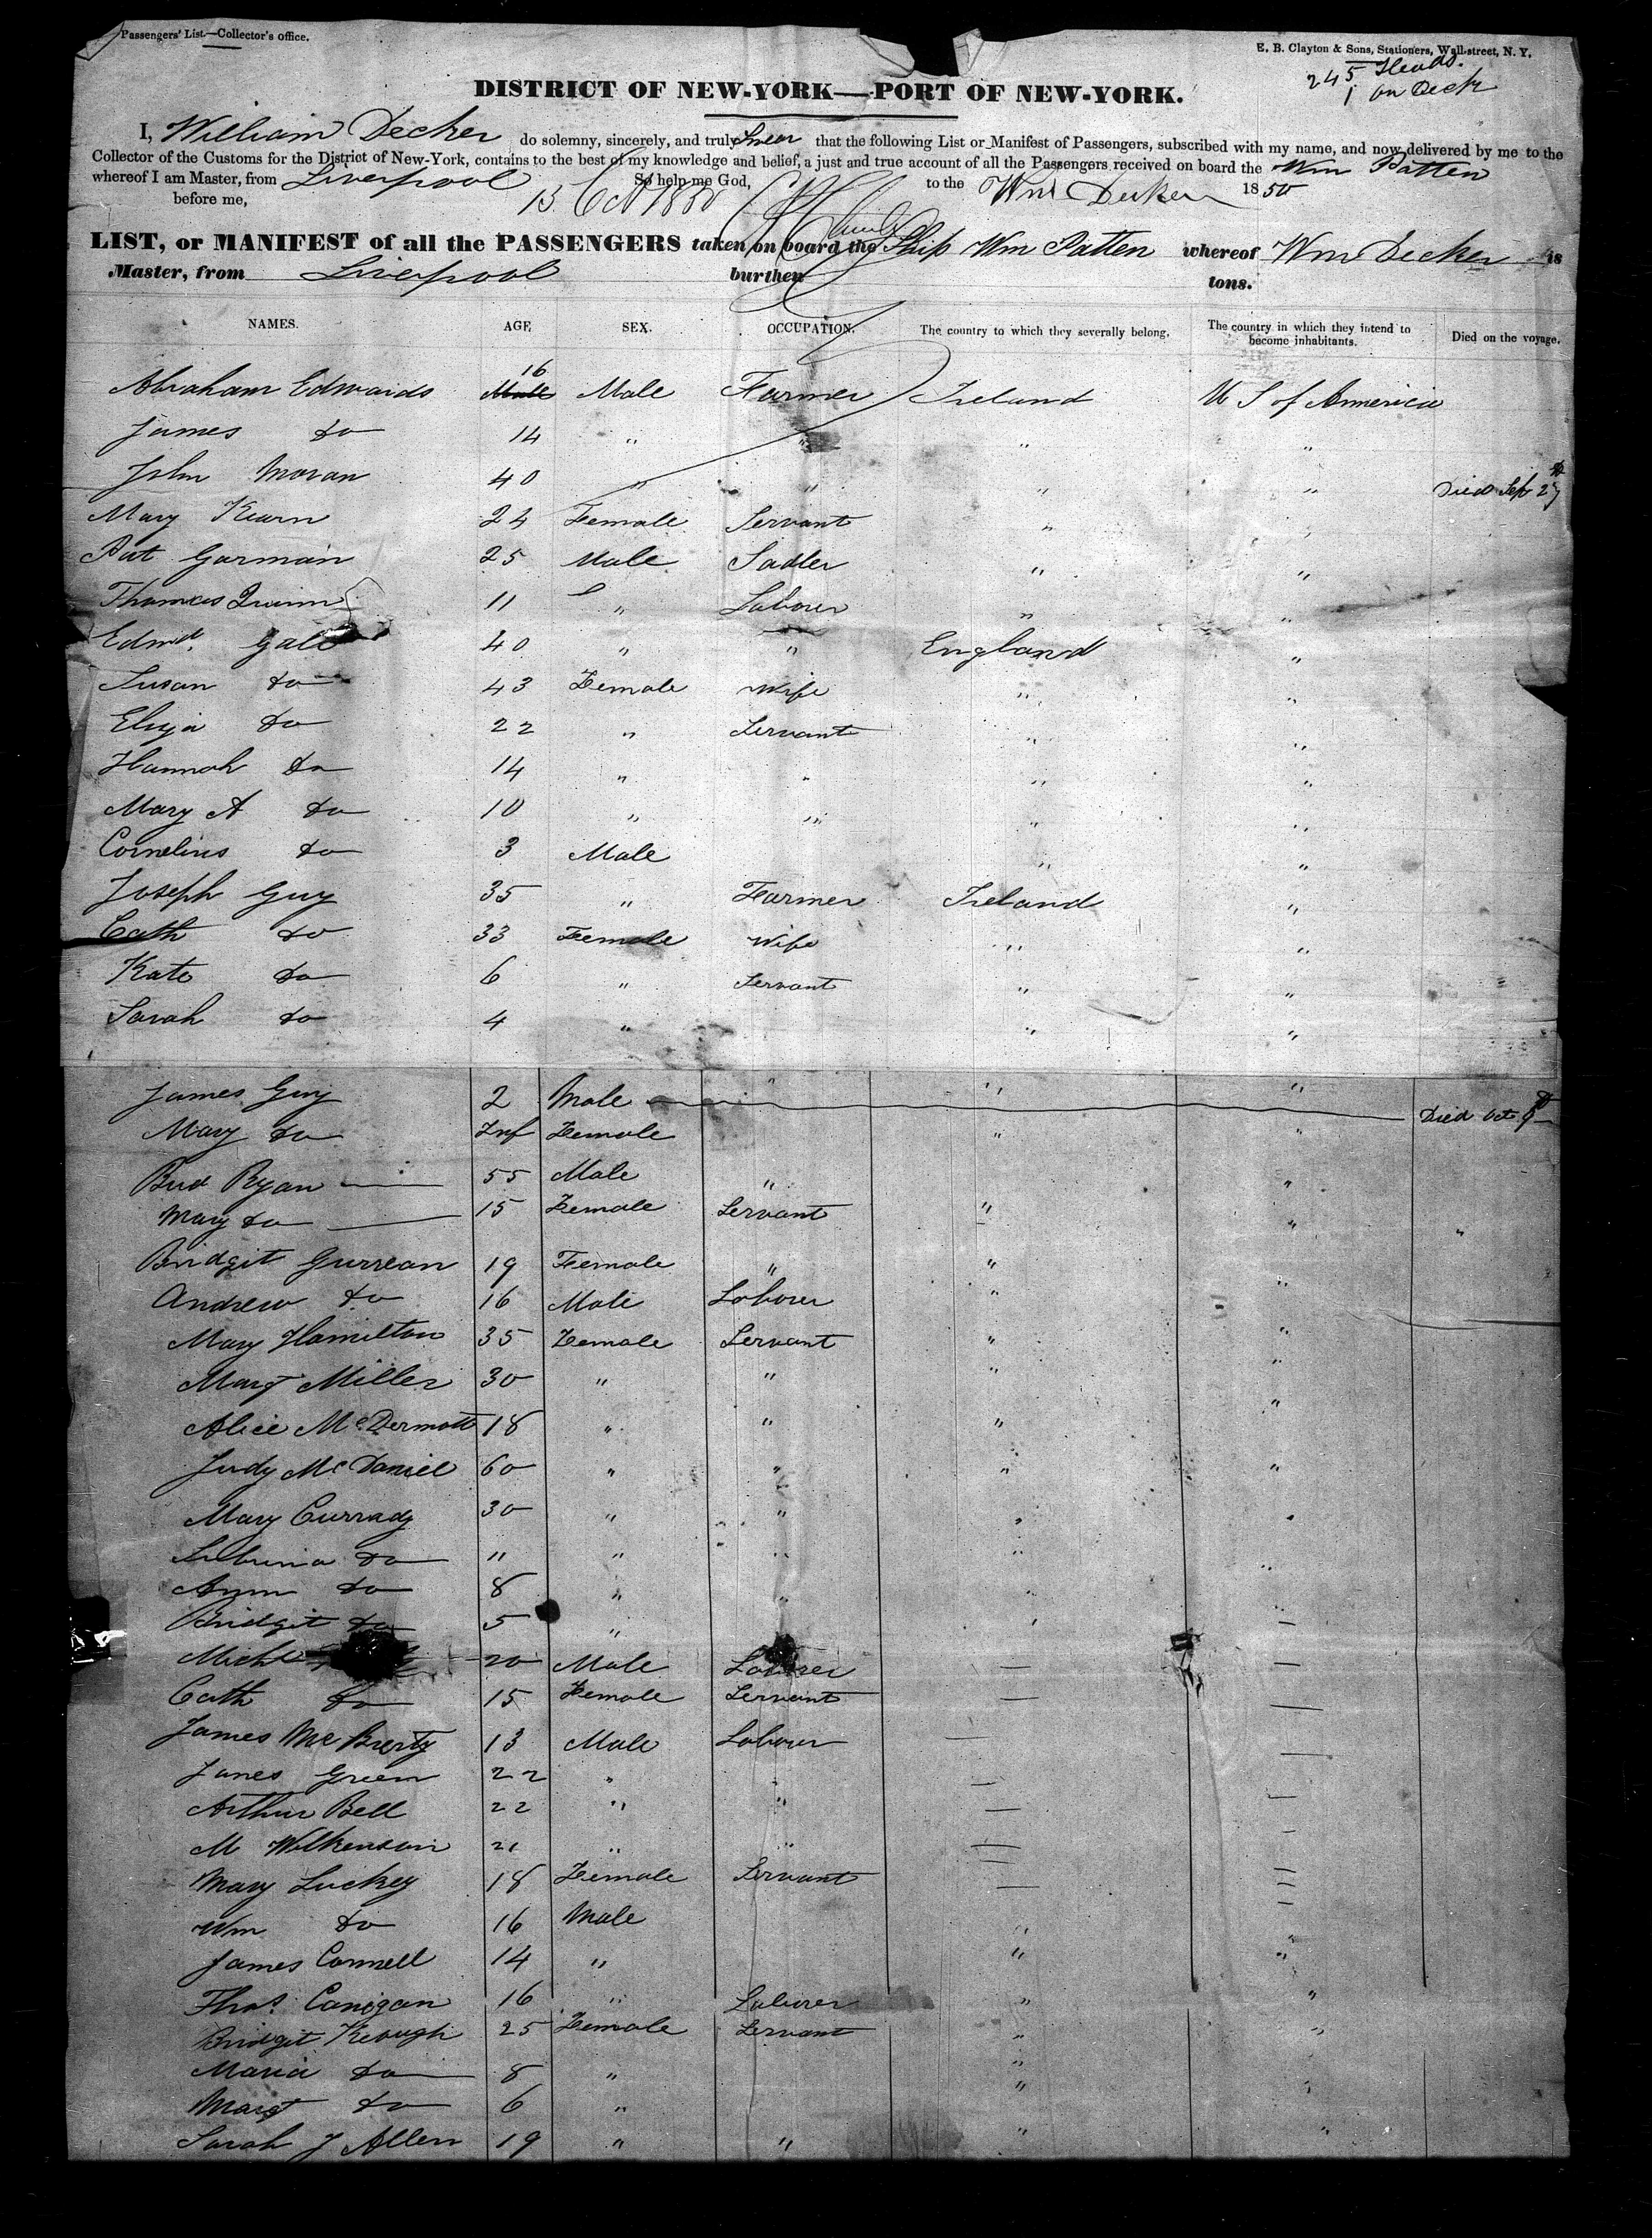 Passengers' List.—Collector's office.
E. B. Clayton & Sons, Stationers, Wall-street, N. Y.
245 Heads.
1 on Deck
DISTRICT OF NEW-YORK—PORT OF NEW-YORK.
I, William Decker do solemny, sincerely, and truly Swear that the following List or Manifest of Passengers, subscribed with my name, and now delivered by me to the
Collector of the Customs for the District of New-York, contains to the best of my knowledge and belief, a just and true account of all the Passengers received on board the Wm Patten
whereof I am Master, from Liverpool So help me God, to the Wm Decker 1850
before me, 15 Oct 1850
LIST, or MANIFEST of all the PASSENGERS taken on board the Ship Wm Patten whereof Wm Decker is
Master, from Liverpool burthen tons.
NAMES. AGE SEX. OCCUPATION. The country to which they severally belong. The country in which they intend to become inhabitants. Died on the voyage.
Abraham Edwards 16 Male Male Farmer Ireland U S of America
James do 14 " " " "
John Moran 40 " " " " Died Sep 27
Mary Kearn 24 Female Servant " "
Pat Garman 25 Male Sadler " "
Thomas Quinn 11 " Laborer " "
Edmd. Gale 40 " " England "
Susan do 43 Female Wife " "
Eliza do 22 " Servant " "
Hannah do 14 " " " "
Mary A do 10 " " " "
Cornelius do 3 Male " "
Joseph Guy 35 " Farmer Ireland "
Cath do 33 Female Wife " "
Kate do 6 " Servant " "
Sarah do 4 " " "
James Guy 2 Male " " " Died Oct 9
Mary do Inf Female " "
Bud Ryan 55 Male " "
Mary do 15 Female Servant " " "
Bridgit Gurrean 19 Female " " "
Andrew do 16 Male Laborer "
Mary Hamilton 35 Female Servant " "
Margt Miller 30 " " " "
Alice McDermott 18 " " " "
Judy McDaniel 60 " " " "
Mary Currady 30 " " " "
do " " " " "
Ann do 8 " " "
Bridgit do 5 " "
Michl 20 Male Laborer — —
Cath do 15 Female Servant — —
James McBrerty 13 Male Laborer — —
James Green 22 " " —
Arthur Bell 22 " " — —
M Wilkenson 21 " " — —
Mary Luckey 18 Female Servant — —
Wm do 16 Male " "
James Connell 14 " " "
Thos. Canigan 16 " Laborer " "
Bridgit Keough 25 Female Servant " "
Maria do 8 " "
Margt do 6 " " "
Sarah J Allen 19 " " " "